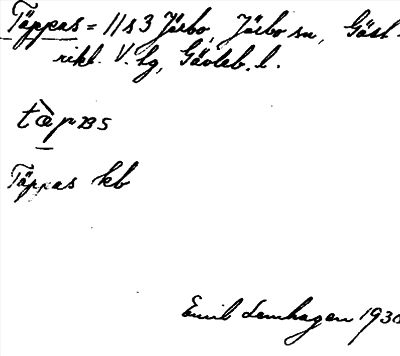 Täppas = 11 s 3 Järbo, Järbo sn, Gäst-
rikl. V. hg, Gävleb. l.
tæpas
Täppas kb
Emil Lemhagen 193